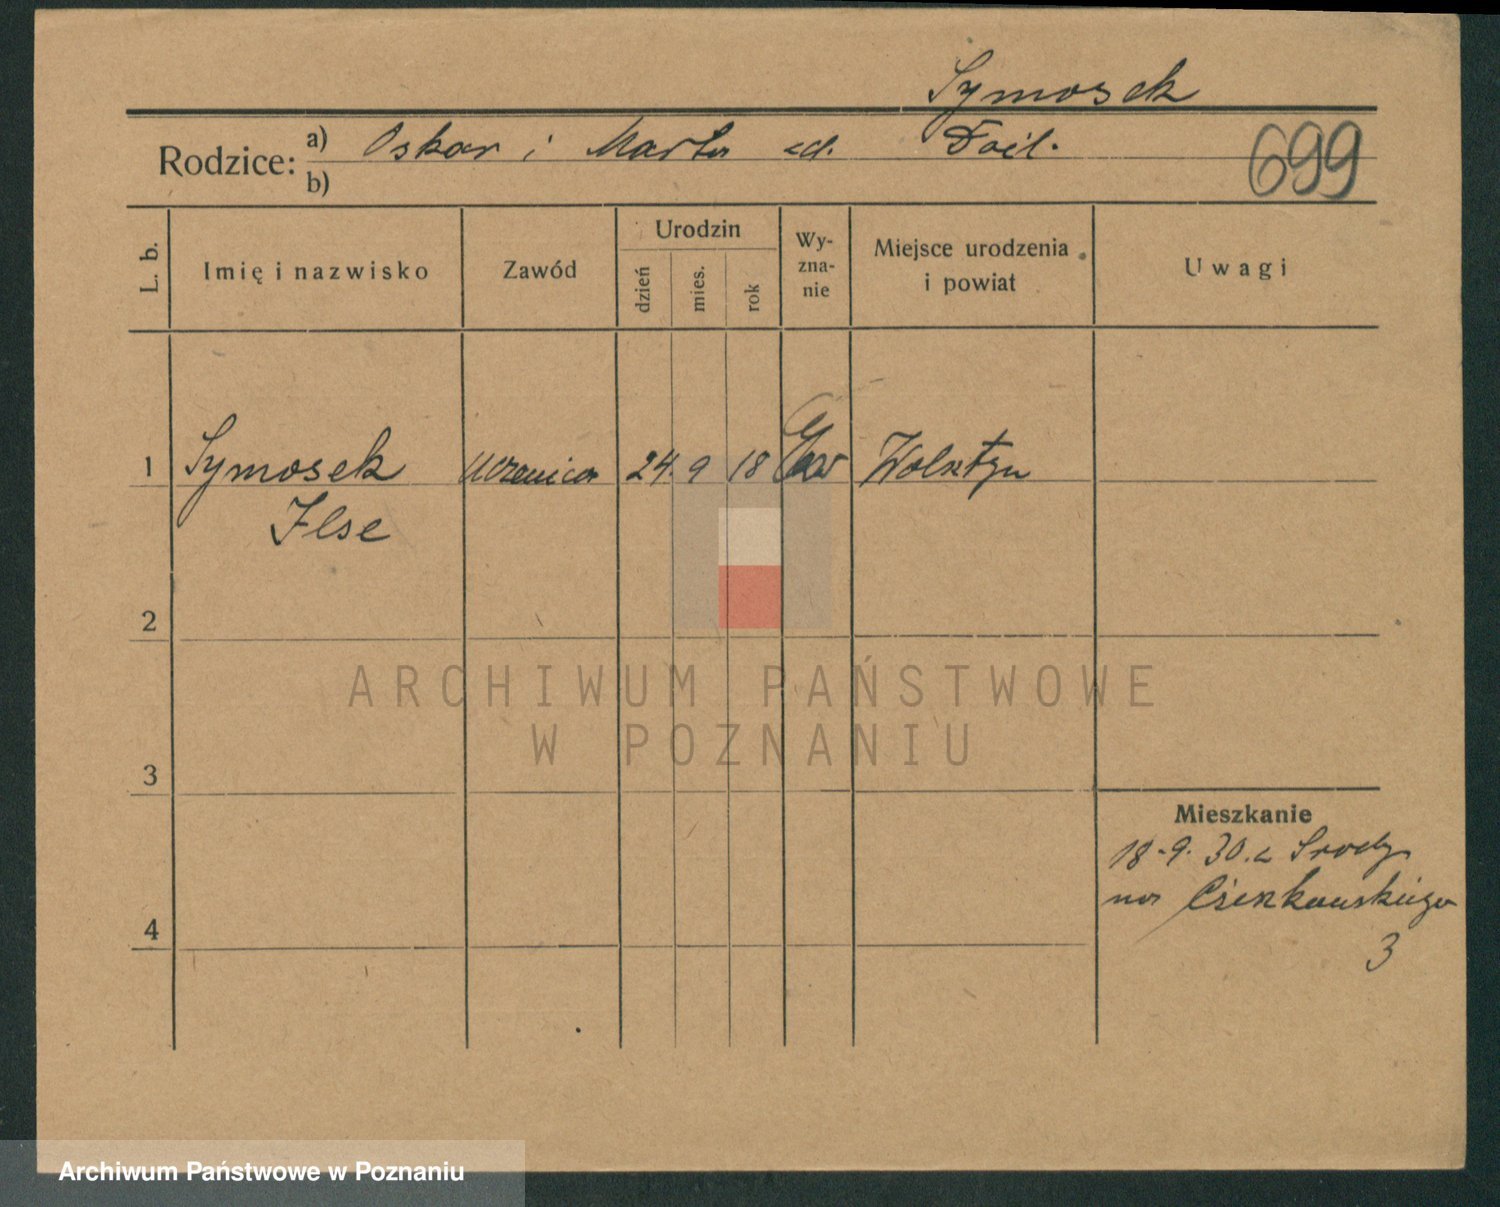 Symosek
Rodzice: a) Oskar i Marta
b)
699
L. b.
Imię i nazwisko
Zawód
Urodzin
dzień
mies.
rok
Wy-
zna-
nie
Miejsce urodzenia
i powiat
Uwagi
1 Symosek uczenica 24. 9 18 Ew Wolsztyn
Ilse
2
ARCHIWUM PAŃSTWOWE
W POZNANIU
3
Mieszkanie
18.9.30. z Środy
na Cieszkowskiego
4
3
Archiwum Państwowe w Poznaniu